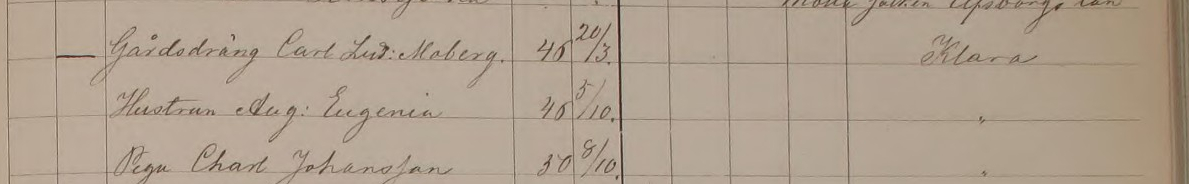 Gårdsdräng Carl Lud: Moberg. 46 20/3. Klara
Hustrun Aug: Eugenia 46 5/10. "
Pega Charl Johansson 30 8/10. "